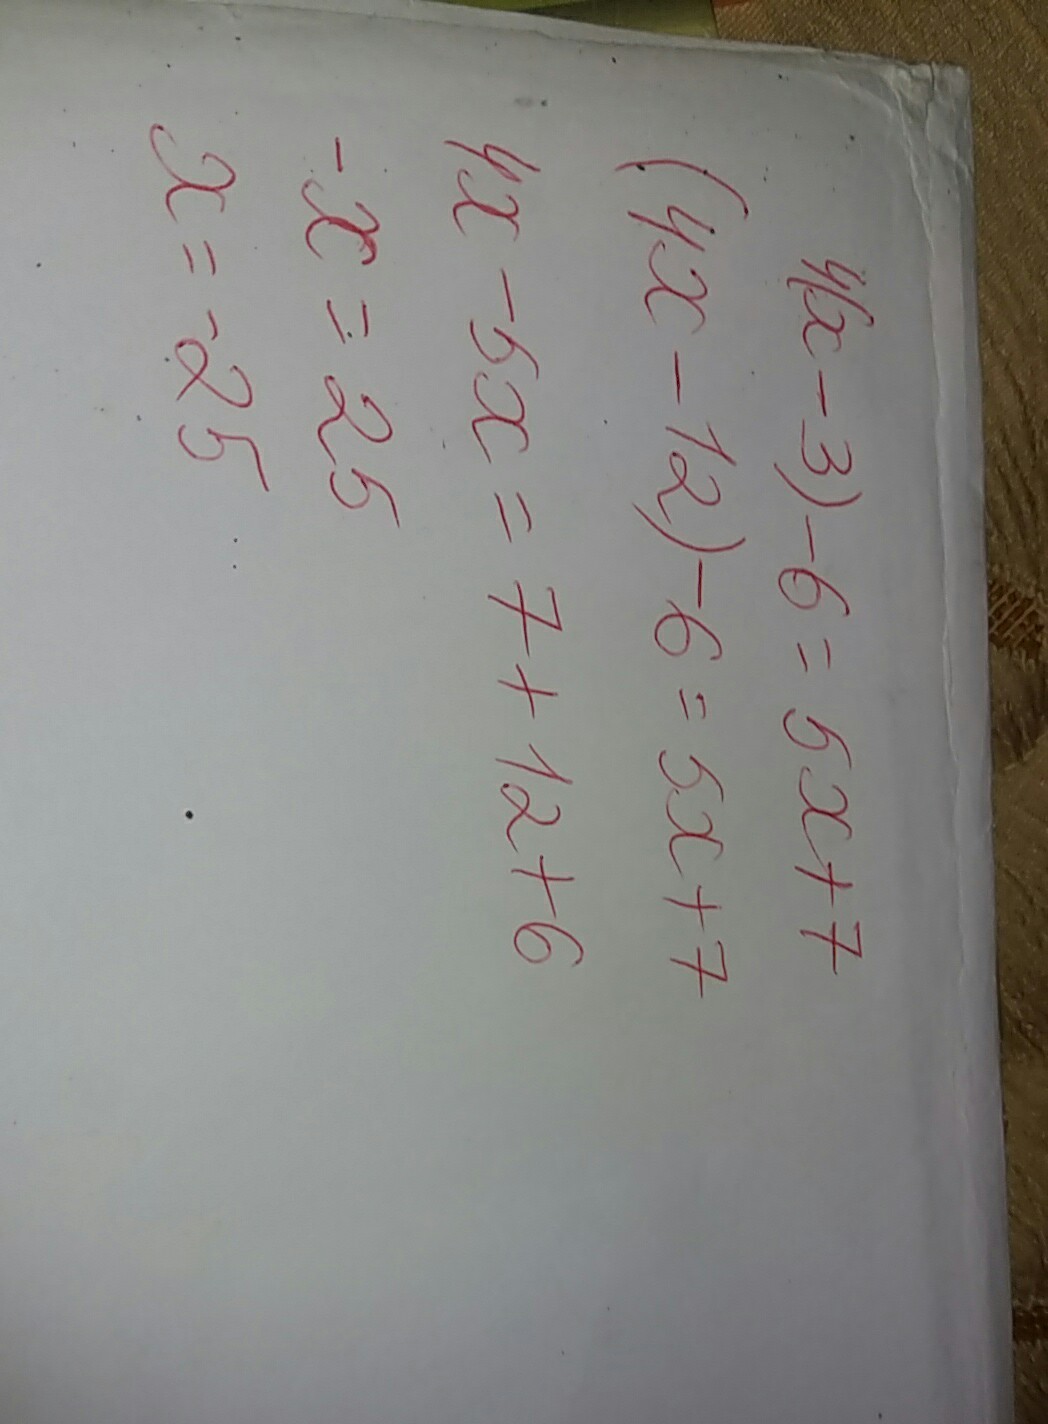 4(x-3)-6=5x+7
(4x-12)-6=5x+7
4x-5x=7+12+6
-x=25
x=-25